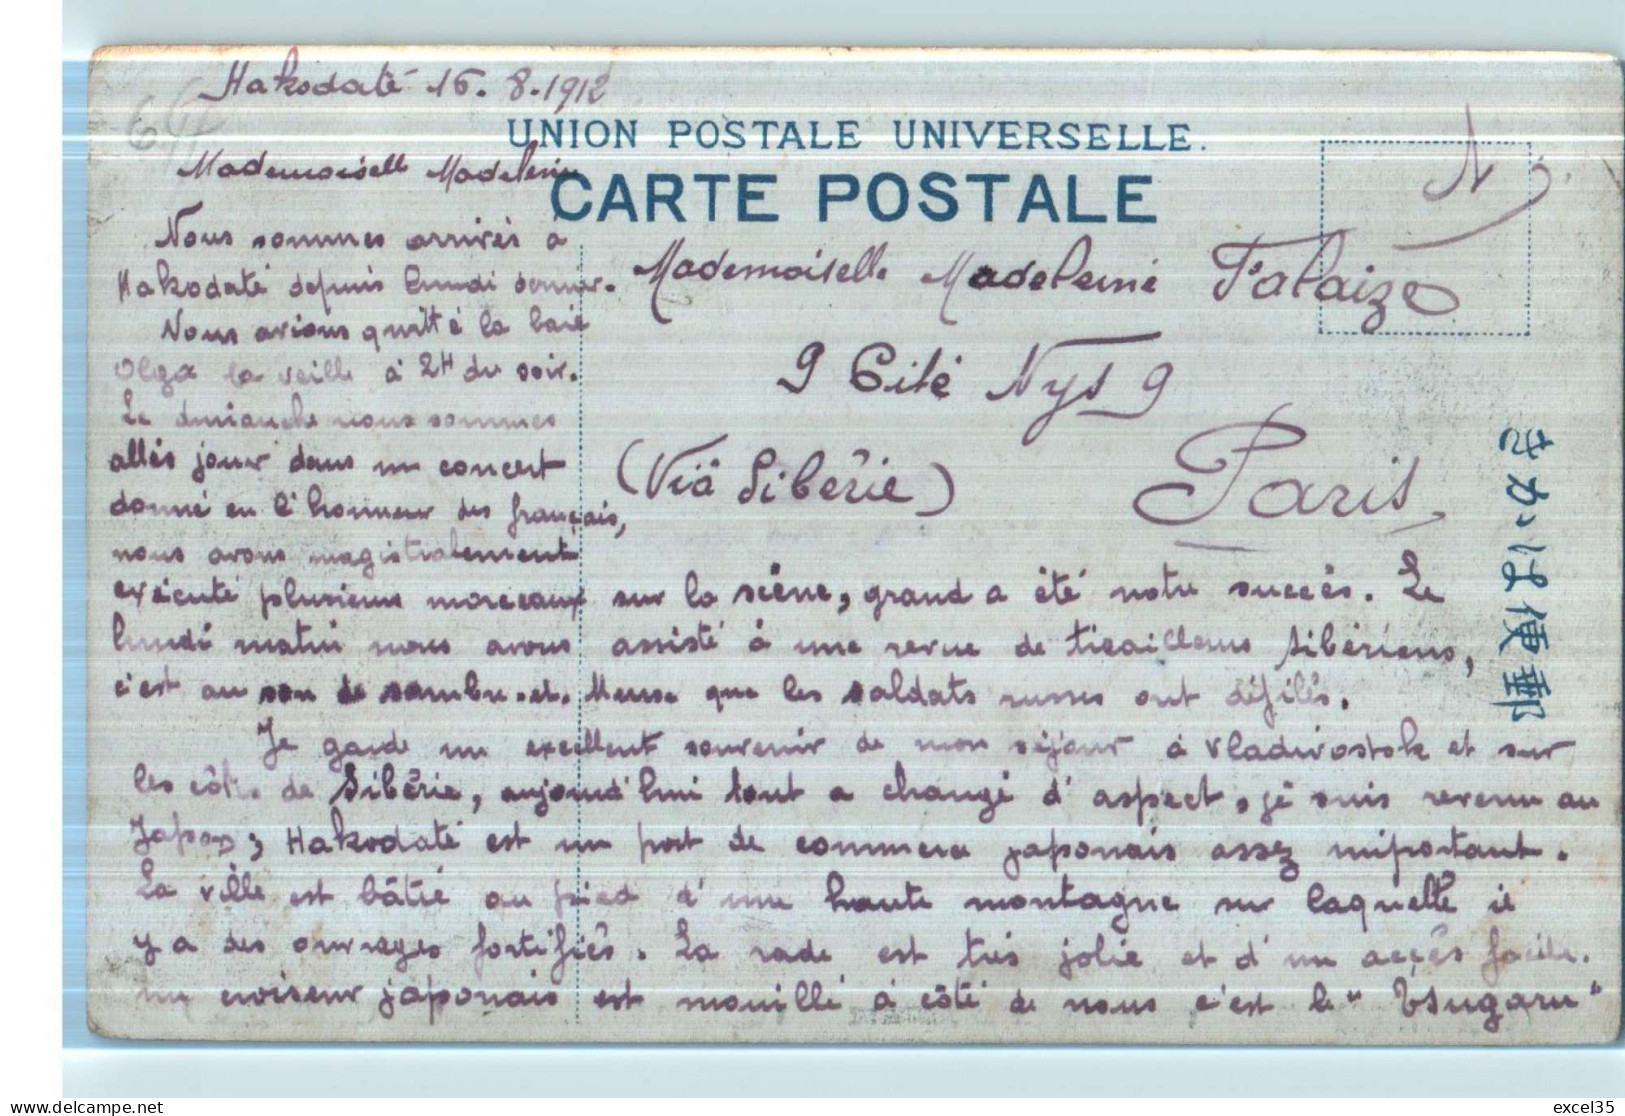 Hakodaté 16.8.1912
UNION POSTALE UNIVERSELLE.
CARTE POSTALE
Mademoiselle Madeleine
Nous sommes arrivés à
Hakodaté depuis lundi dernier.
Nous avions quitté la baie
Olga la veille à 2H du soir.
Le dimanche nous sommes
allés jouer dans un concert
donné en l'honneur des français,
nous avons magistralement
exécuté plusieurs morceaux sur la scène, grand a été notre succès. Le
lundi matin nous avons assisté à une revue de tirailleurs Sibériens,
c'est au son de sambre-et-Meuse que les soldats russes ont défilés.
Je garde un excellent souvenir de mon séjour à Vladivostok et sur
les côtes de Sibérie, aujourd'hui tout a changé d'aspect, je suis revenu au
Japon; Hakodaté est un port de commerce japonais assez important.
La ville est bâtie au pied d'une haute montagne sur laquelle il
y a des ouvrages fortifiés. La rade est très jolie et d'un accès facile.
un croiseur japonais est mouillé à côté de nous c'est le "Tsugaru"
Mademoiselle Madeleine Falaize
9 Cité Nys 9
(Viâ Sibérie) Paris
N
きかは便郵
excel35